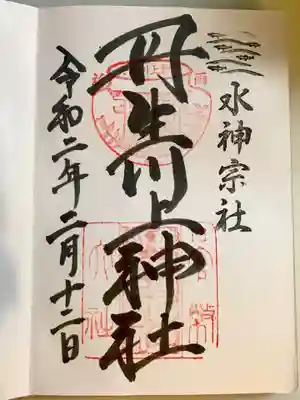 水神宗社
丹生川上神社
令和二年二月十二日